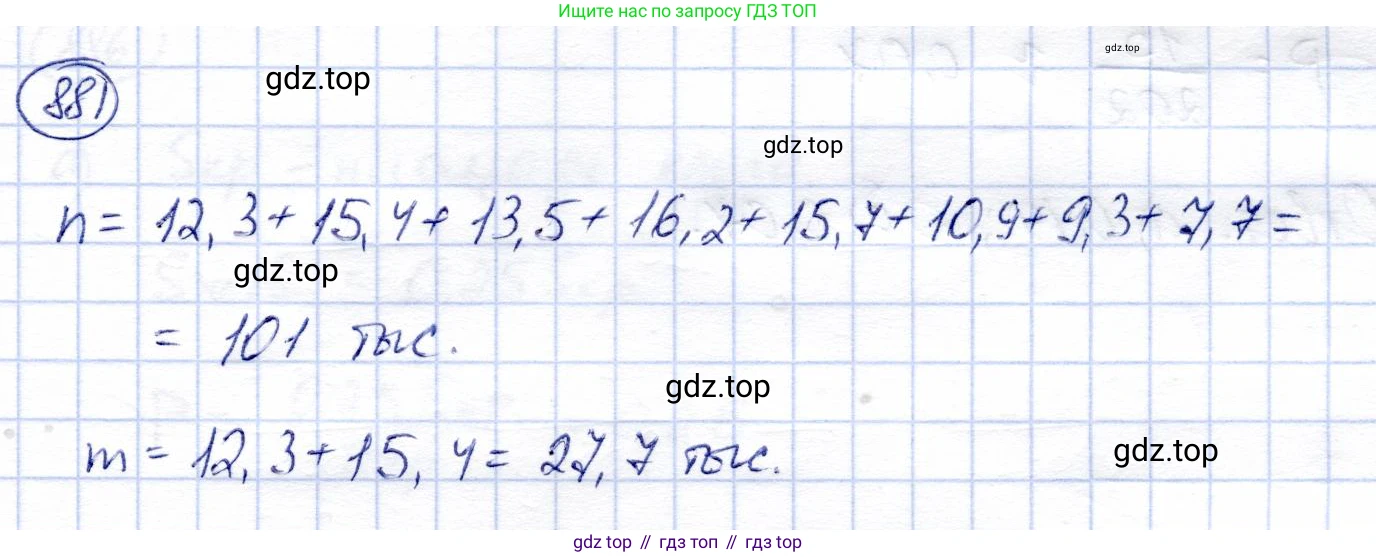 Ищите нас по запросу ГДЗ ТОП
gdz.top
881
gdz.top
gdz.top
n = 12,3 + 15,4 + 13,5 + 16,2 + 15,7 + 10,9 + 9,3 + 7,7 =
gdz.top
= 101 тыс.
gdz.top
m = 12,3 + 15,4 = 27,7 тыс.
gdz.top
gdz top // гдз топ // gdz top